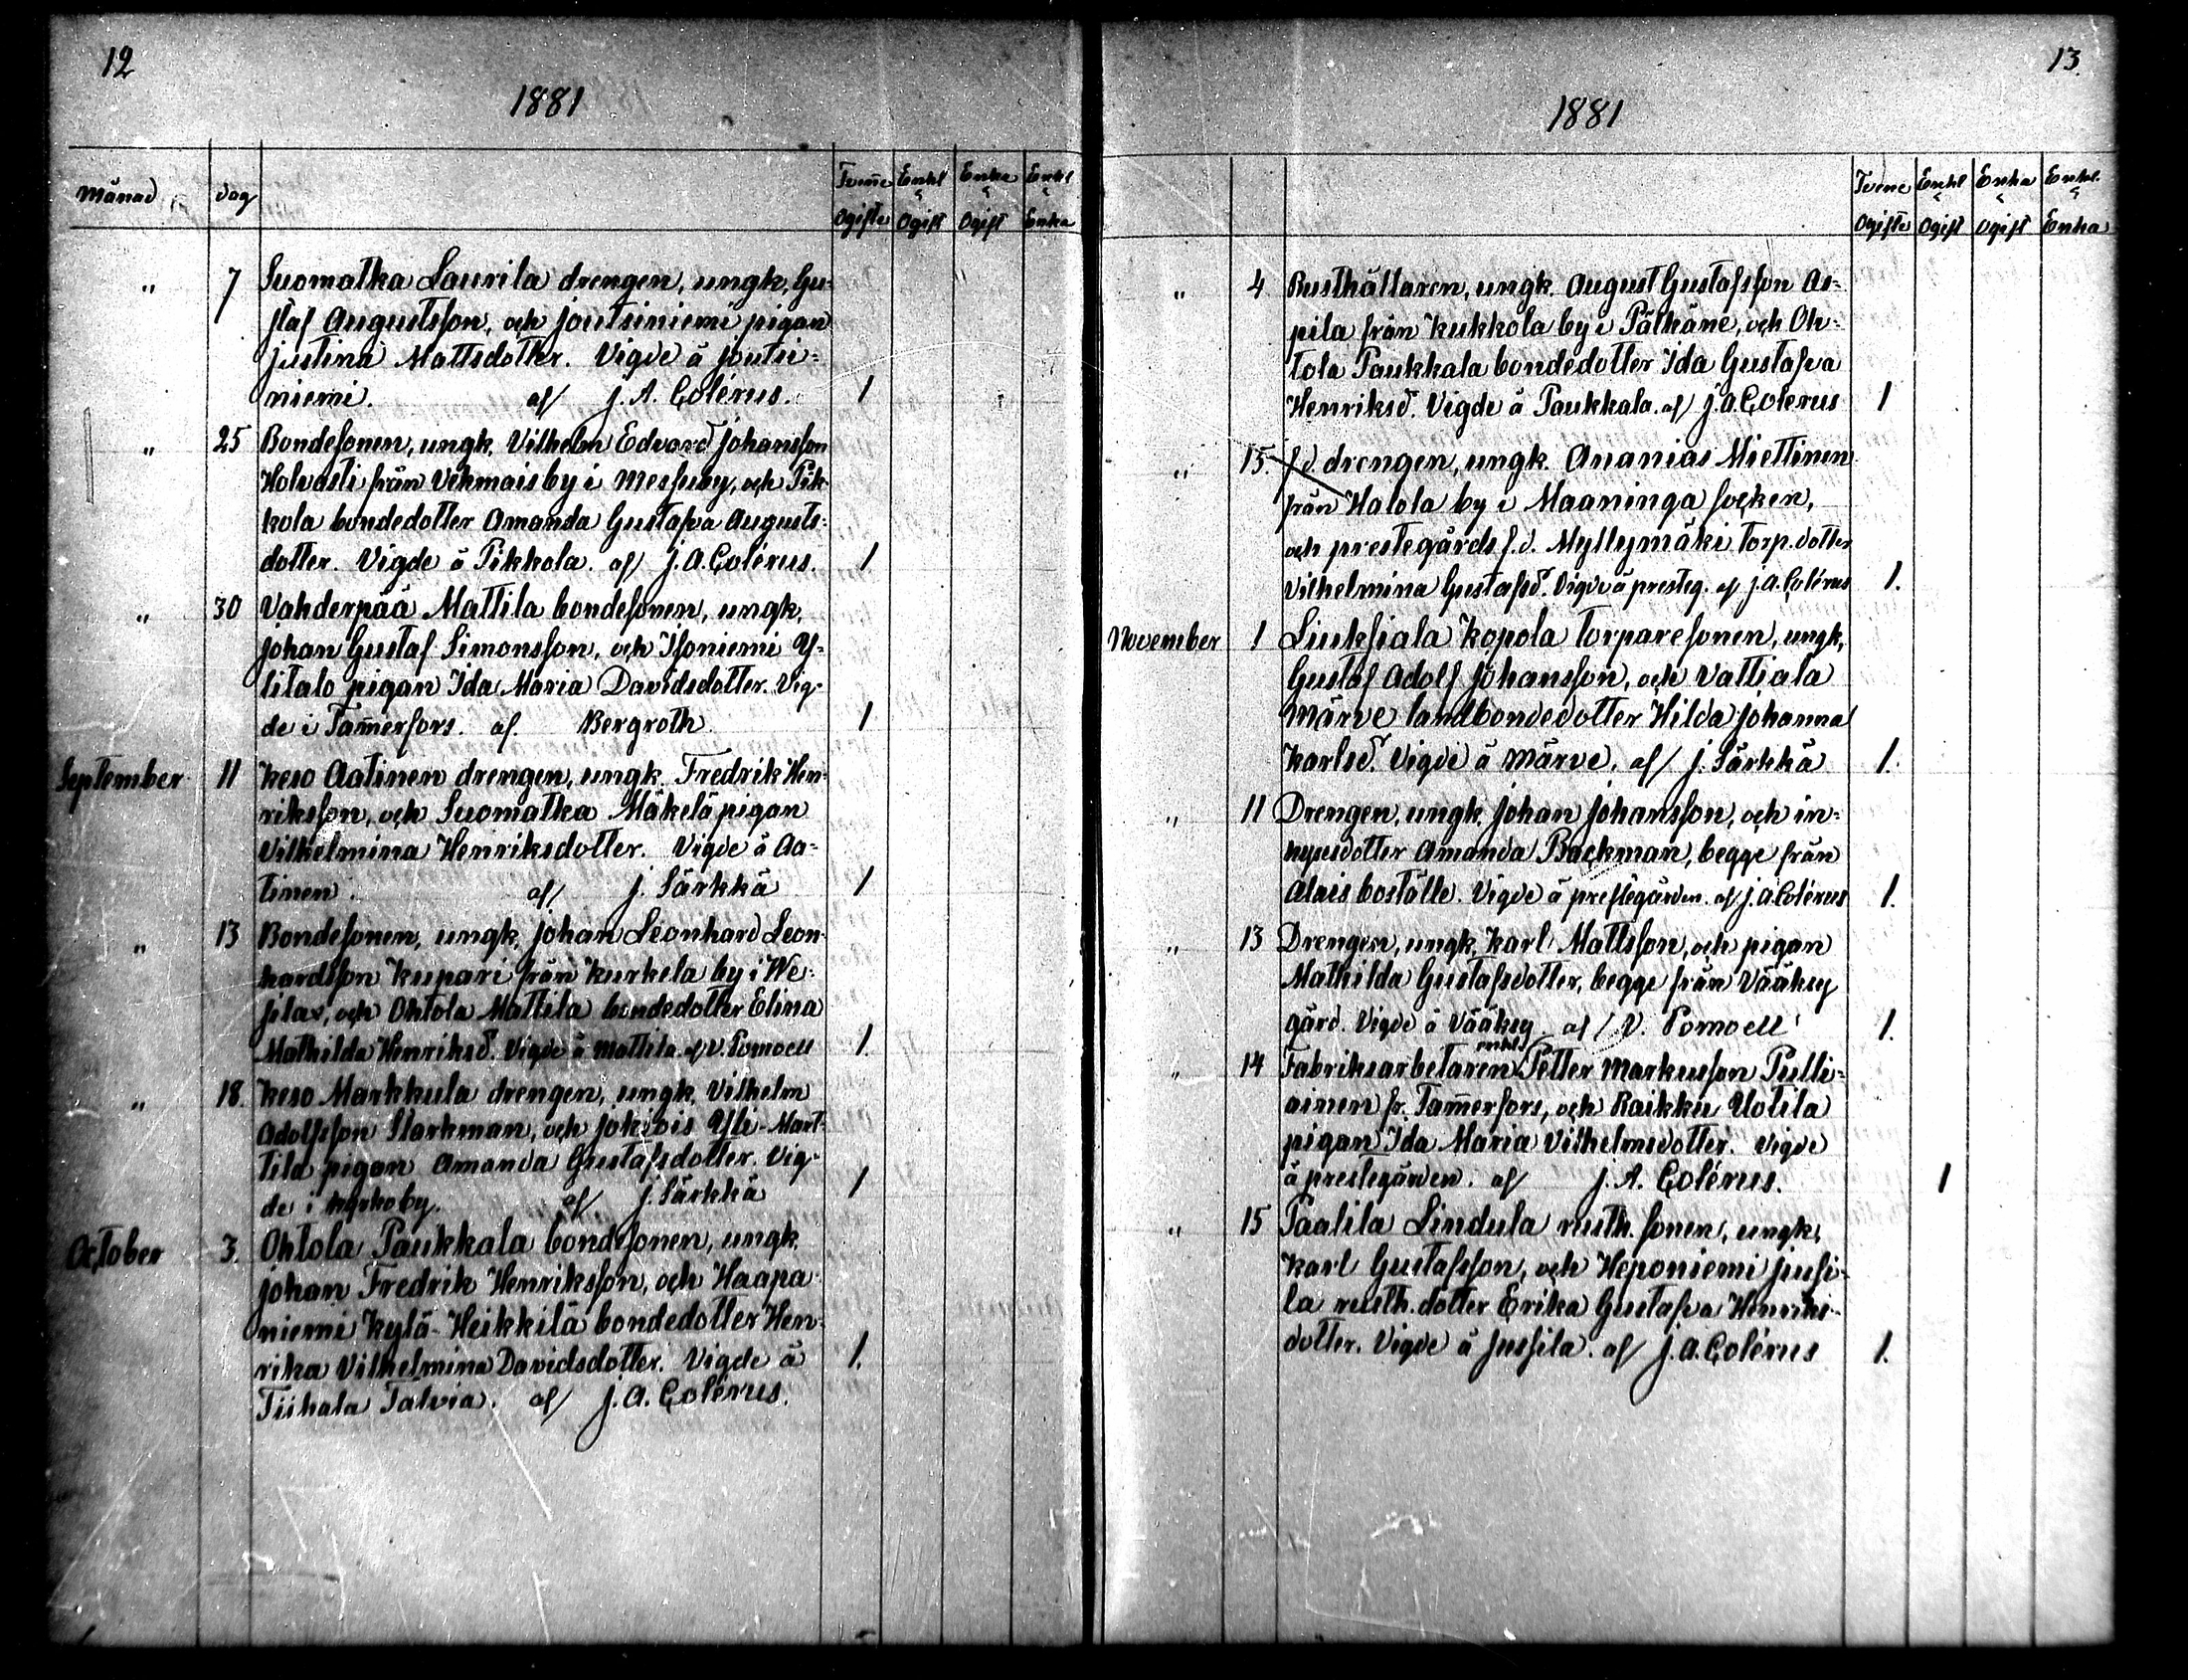 12
1881
Månad
dag
Tvenne Ogifte
Enkl & Ogift
Enka & Ogift
Enkl & Enka
" 7 Suomatka Laurila drengen, ungk. Gu-
staf Augustsson, och Joutsiniemi pigan
Justina Mattsdotter. Vigde å Joutsi-
niemi. af J. A. Colérus. 1
" 25 Bondesonen, ungk. Vilhelm Edvard Johansson
Hohvasti från Vehmais by i Messuby, och Pik-
kola bondedotter Amanda Gustafva Augusts-
dotter. Vigde å Pikkola. af J. A. Colérus. 1
" 30 Vahderpää Mattila bondesonen, ungk.
Johan Gustaf Simonsson, och Isoniemi Y-
litalo pigan Ida Maria Davidsdotter. Vig-
de i Tam̄erfors. af Bergroth. 1
September 11 Keso Aatinen drengen, ungk. Fredrik Hen-
riksson, och Suomatka Mäkelä pigan
Vilhelmina Henriksdotter. Vigde å Aa-
tinen. af J. Särkkä 1
" 13 Bondesonen, ungk. Johan Leonhard Leon-
hardsson Kupari från Kurkela by i We-
silax, och Ohtola Mattila bondedotter Elina
Mathilda Henriksd. Vigde å Mattila. af V. Pomoell 1.
" 18. Keso Markkula drengen, ungk. Vilhelm
Adolfsson Starkman, och Jokiois Yli-Mart-
tila pigan Amanda Gustafsdotter. Vig-
de i kyrkoby. af J. Särkkä 1
October 3. Ohtola Paukkala bondesonen, ungk.
Johan Fredrik Henriksson, och Haapa-
niemi Kylä-Heikkilä bondedotter Hen-
rika Vilhelmina Davidsdotter. Vigde å 1.
Tiihala Talvia. af J. A. Colérus.
13.
1881
Tvene Ogifte
Enkl & Ogift
Enka & Ogift
Enkl. & Enka
" 4 Rusthållaren, ungk. August Gustafsson As-
pila från Kukkola by i Pälkäne, och Oh-
tola Paukkala bondedotter Ida Gustafva
Henriksd. Vigde å Paukkala. af J. A. Colérus 1
" 15. f.d. drengen, ungk. Ananias Miettinen
från Halola by i Maaninga socken,
och prestegårds f.d. Myllymäki torp. dotter
Vilhelmina Gustafsd. Vigde å presteg. af J. A. Colérus 1.
November 1 Liuksiala Kopola torparesonen, ungk.
Gustaf Adolf Johansson, och Vattiala
Märve landbondedotter Hilda Johanna
Karlsd. Vigde å Märve. af J. Särkkä 1.
" 11 Drengen, ungk. Johan Johansson, och in-
hysesdotter Amanda Backman, begge från
Alais boställe. Vigde å prestegården. af J. A. Colérus 1.
" 13 Drengen, ungk. Karl Mattsson, och pigan
Mathilda Gustafsdotter, begge från Vääksy
gård. Vigde å Vääksy. af V. Pomoell 1.
" 14 Fabriksarbetaren enkl. Petter Markusson Pulli-
ainen fr. Tam̄erfors, och Raikku Uotila
pigan Ida Maria Vilhelmsdotter. Vigde
å prestegården. af J. A. Colérus. 1
" 15 Taalila Lindula rusth. sonen, ungk.
Karl Gustafsson, och Heponiemi Jussi-
la rusth. dotter Erika Gustafva Henriks-
dotter. Vigde å Jussila. af J. A. Colérus 1.